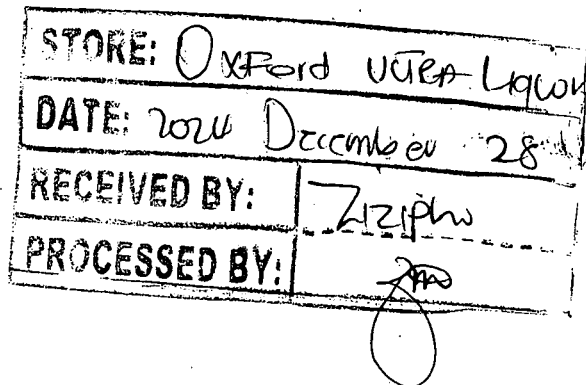 STORE: Oxford ULTRA Liquor
DATE: 2024 December 28
RECEIVED BY: Zizipho
PROCESSED BY: